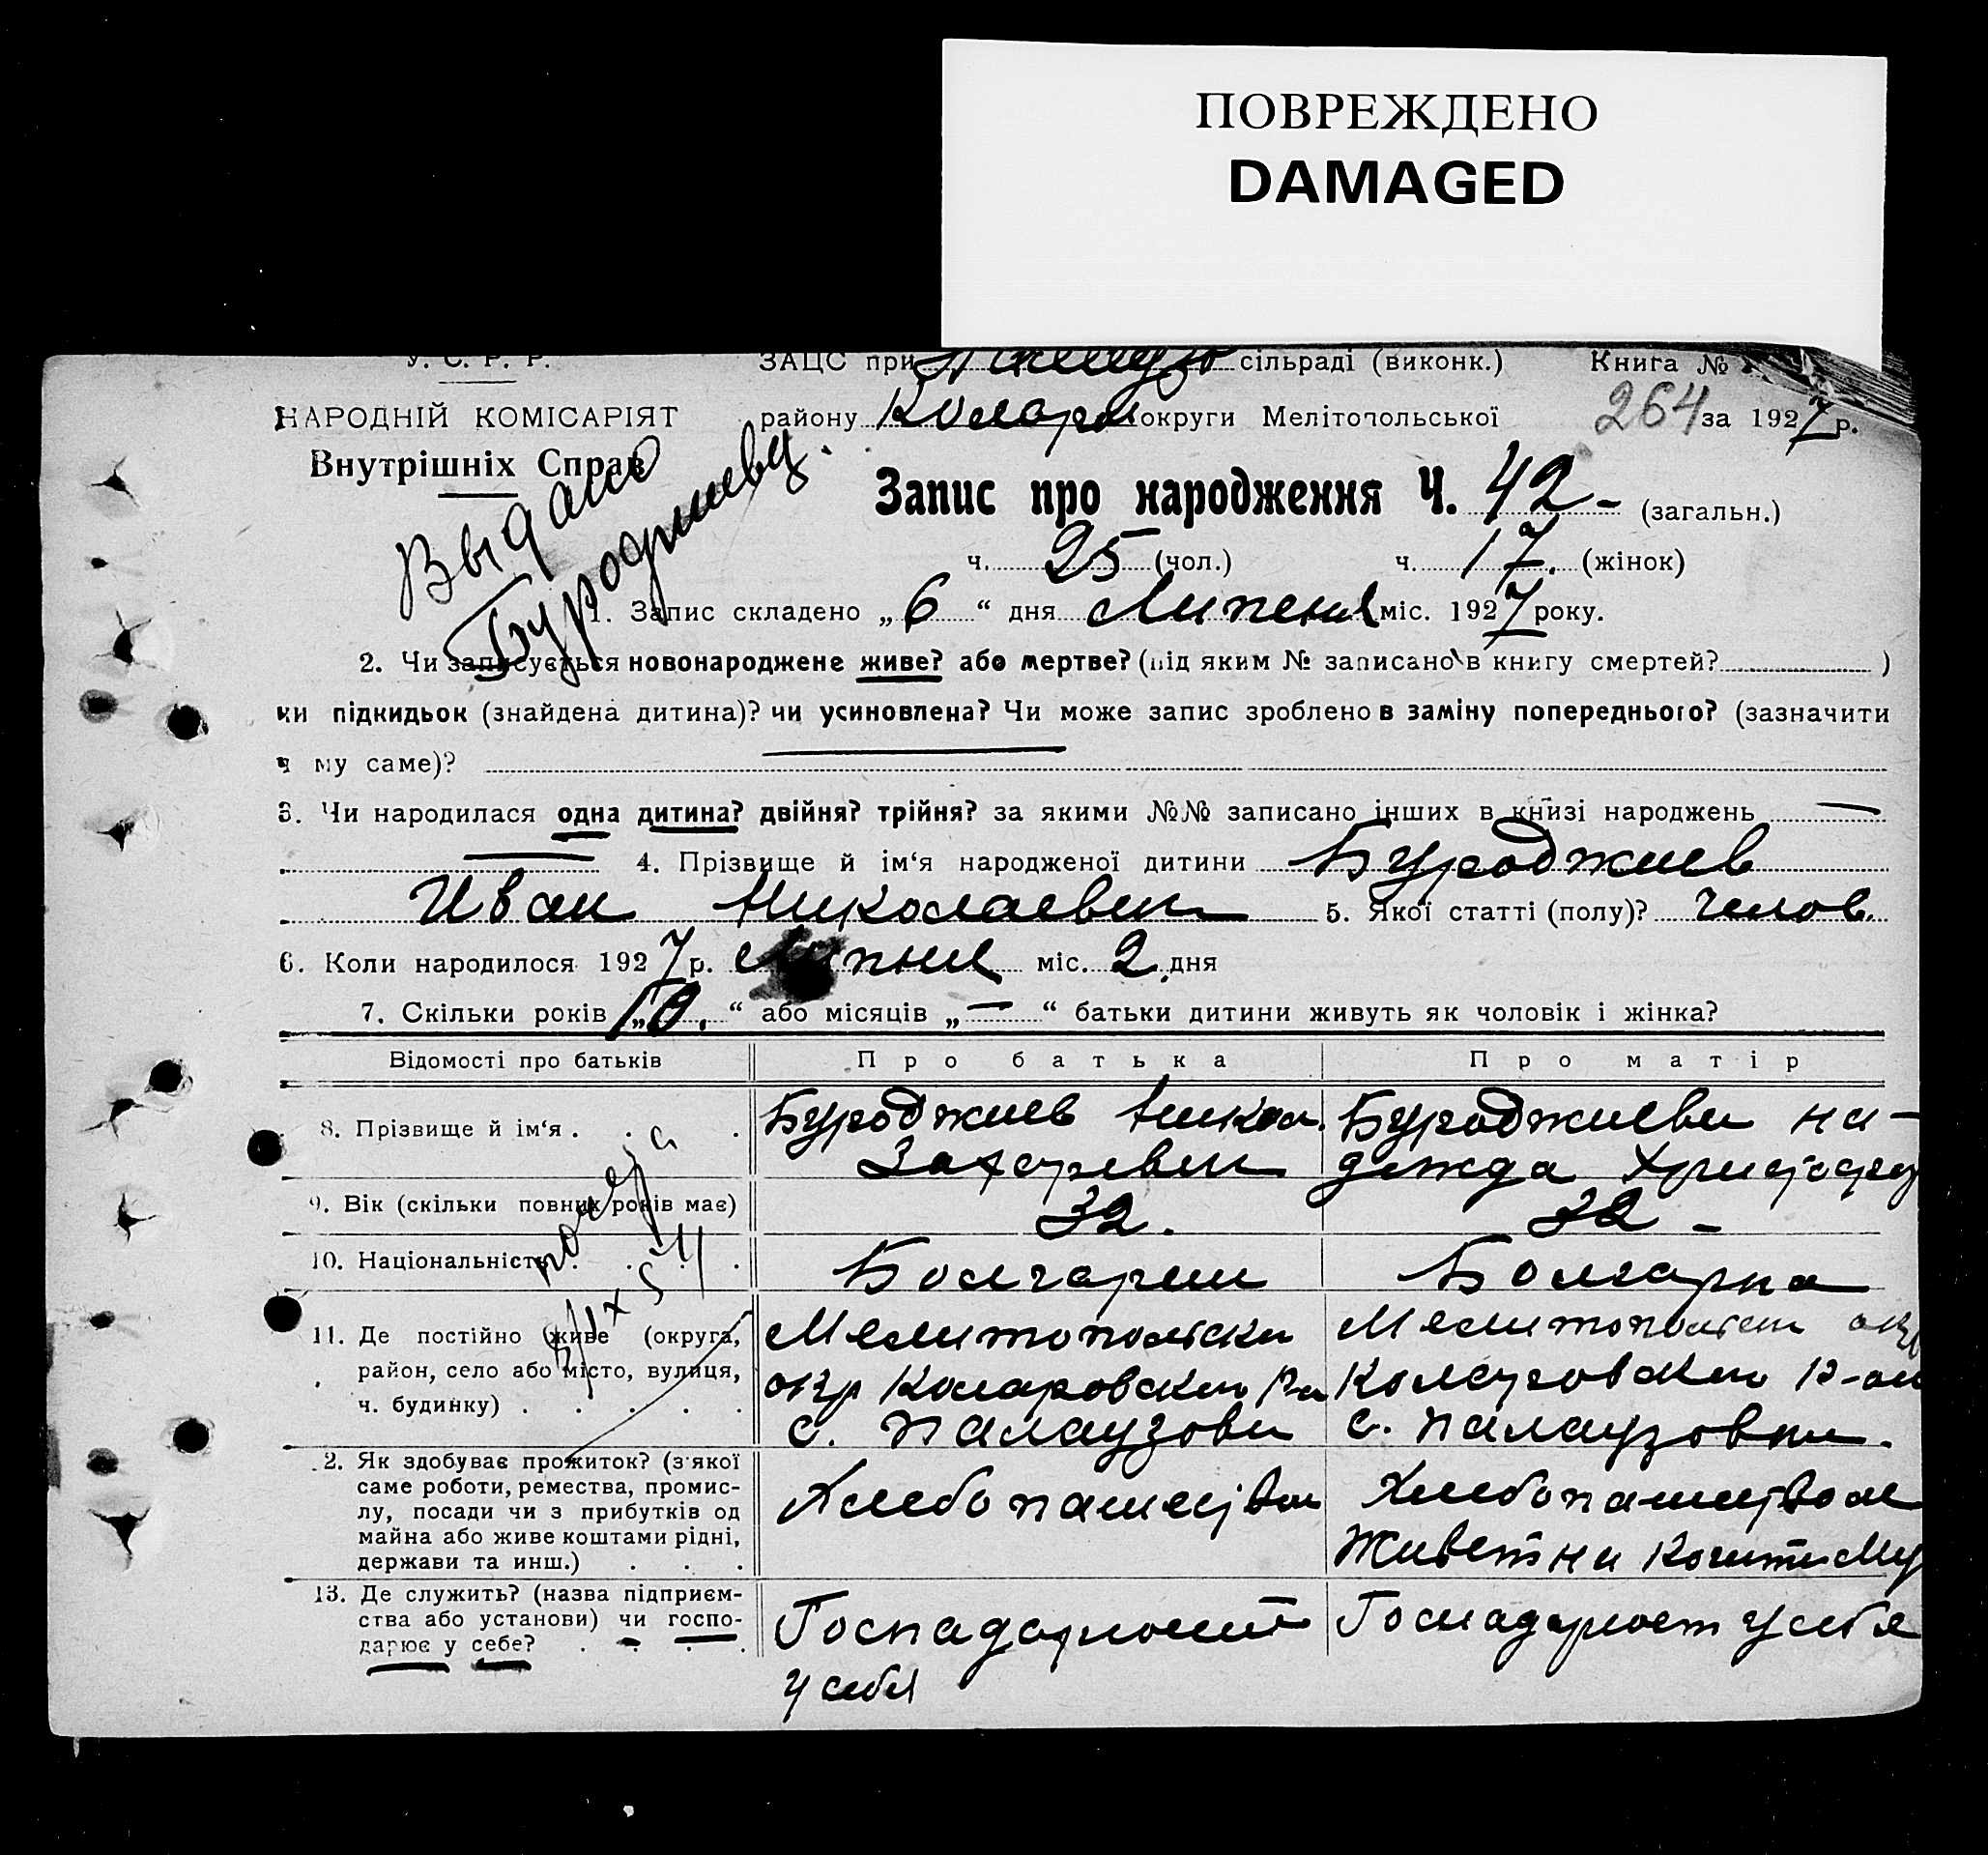 ПОВРЕЖДЕНО
DAMAGED
У. С. Р. Р. ЗАЦС при сільраді (виконк.) Книга №
НАРОДНІЙ КОМІСАРІЯТ району Коларов округи Мелітопольської 264 за 1927 р.
Внутрішніх Справ
Выдано
Буроджиеву.
Запис про народження Ч. 42 - (загальн.)
ч. 25 (чол.) ч. 17. (жінок)
1. Запис складено „ 6 “ дня Липень міс. 1927 року.
2. Чи записується новонароджене живе? або мертве? (під яким № записано в книгу смертей? )
чи підкидьок (знайдена дитина)? чи усиновлена? Чи може запис зроблено в заміну попереднього? (зазначити
ч му саме)?
3. Чи народилася одна дитина? двійня? трійня? за якими №№ записано інших в книзі народжень —
— 4. Прізвище й ім‘я народженої дитини Буроджиев
Иван Николаевич 5. Якої статті (полу)? челов.
6. Коли народилося 1927 р. Липня міс. 2 дня
7. Скільки років „ 10. “ або місяців „ — “ батьки дитини живуть як чоловік і жінка?
Відомості про батьків Про батька Про матір
8. Прізвище й ім‘я . . . Буроджиев Никол. Буроджиева На-
Захарьевич дежда
9. Вік (скільки повних років має) 32. 32 -
10. Національність . . . . Болгарин Болгарка
11. Де постійно живе (округа, Мелитопольски Мелитопольски окр
район, село або місто, вулиця, окр Коларовского Р-на Коларовского Р-на
ч. будинку) . . . . . с. Палаузовка с. Палаузовка.
2. Як здобуває прожиток? (з якої
саме роботи, ремества, промис- Хлебопашеством Хлебопашеством
лу, посади чи з прибутків од
майна або живе коштами рідні, Живет на
держави та инш.) . . .
13. Де служить? (назва підприєм-
ства або установи) чи госпо- Госпадарюет Госпадарюет у себя
дарює у себе? . . . . у себя